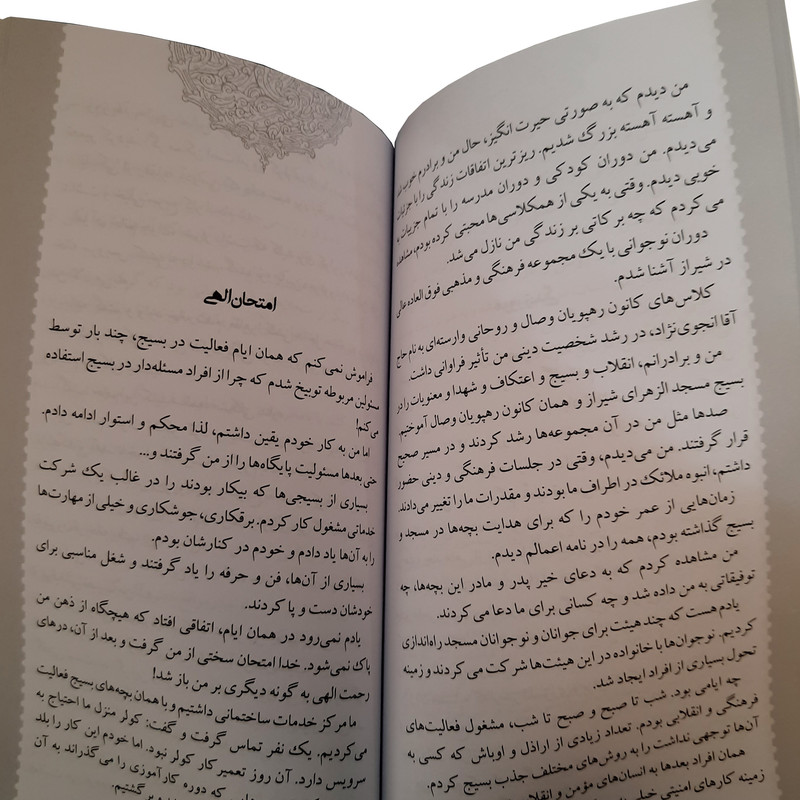 من دیدم که به صورتی حیرت انگیز، حال من و برادرم خوب شد
و آهسته آهسته بزرگ شدیم. ریزترین اتفاقات زندگی را با جزئیات
می‌دیدم. من دوران کودکی و دوران مدرسه را با تمام جزییات به
خوبی دیدم. وقتی به یکی از همکلاسی‌ها محبتی کرده بودم، مشاهده
می کردم که چه برکاتی بر زندگی من نازل می‌شد.
دوران نوجوانی با یک مجموعه فرهنگی و مذهبی فوق العاده عالی
در شیراز آشنا شدم.
کلاس‌های کانون رهپویان وصال و روحانی وارسته‌ای به نام حاج
آقا انجوی‌نژاد، در رشد شخصیت دینی من تأثیر فراوانی داشت.
من و برادرانم، انقلاب و بسیج و اعتکاف و شهدا و معنویات را در
بسیج مسجد الزهرای شیراز و همان کانون رهپویان وصال آموختیم.
صدها مثل من در آن مجموعه‌ها رشد کردند و در مسیر صحیح
قرار گرفتند. من می‌دیدم، وقتی در جلسات فرهنگی و دینی حضور
داشتم، انبوه ملائک در اطراف ما بودند و مقدرات ما را تغییر می‌دادند.
زمان‌هایی از عمر خودم را که برای هدایت بچه‌ها در مسجد و
بسیج گذاشته بودم، همه را در نامه اعمالم دیدم.
من مشاهده کردم که به دعای خیر پدر و مادر این بچه‌ها، چه
توفیقاتی به من داده شد و چه کسانی برای ما دعا می کردند.
یادم هست که چند هیئت برای جوانان و نوجوانان مسجد راه‌اندازی
کردیم. نوجوان‌ها با خانواده در این هیئت‌ها شرکت می کردند و زمینه
تحول بسیاری از افراد ایجاد شد.
چه ایامی بود. شب تا صبح و صبح تا شب، مشغول فعالیت‌های
فرهنگی و انقلابی بودم. تعداد زیادی از اراذل و اوباش که کسی به
آن‌ها توجهی نداشت را به روش‌های مختلف جذب بسیج کردم.
همان افراد بعدها به انسان‌های مؤمن و
زمینه کارهای امنیتی خیلی
امتحان الهی
فراموش نمی‌کنم که همان ایام فعالیت در بسیج، چند بار توسط
مسئولین مربوطه توبیخ شدم که چرا از افراد مسئله‌دار در بسیج استفاده
می کنم!
اما من به کار خودم یقین داشتم، لذا محکم و استوار ادامه دادم.
حتی بعدها مسئولیت پایگاه‌ها را از من گرفتند و...
بسیاری از بسیجی‌ها که بیکار بودند را در غالب یک شرکت
خدماتی مشغول کار کردم. برقکاری، جوشکاری و خیلی از مهارت‌ها
را به آن‌ها یاد دادم و خودم در کنارشان بودم.
بسیاری از آن‌ها، فن و حرفه را یاد گرفتند و شغل مناسبی برای
خودشان دست و پا کردند.
یادم نمی‌رود در همان ایام، اتفاقی افتاد که هیچگاه از ذهن من
پاک نمی‌شود. خدا امتحان سختی از من گرفت و بعد از آن، درهای
رحمت الهی به گونه دیگری بر من باز شد!
ما مرکز خدمات ساختمانی داشتیم و با همان بچه‌های بسیج فعالیت
می‌کردیم. یک نفر تماس گرفت و گفت: کولر منزل ما احتیاج به
سرویس دارد. آن روز تعمیر کار کولر نبود. اما خودم این کار را بلد
که دوره کارآموزی را می گذراند به آن
برگشتیم.